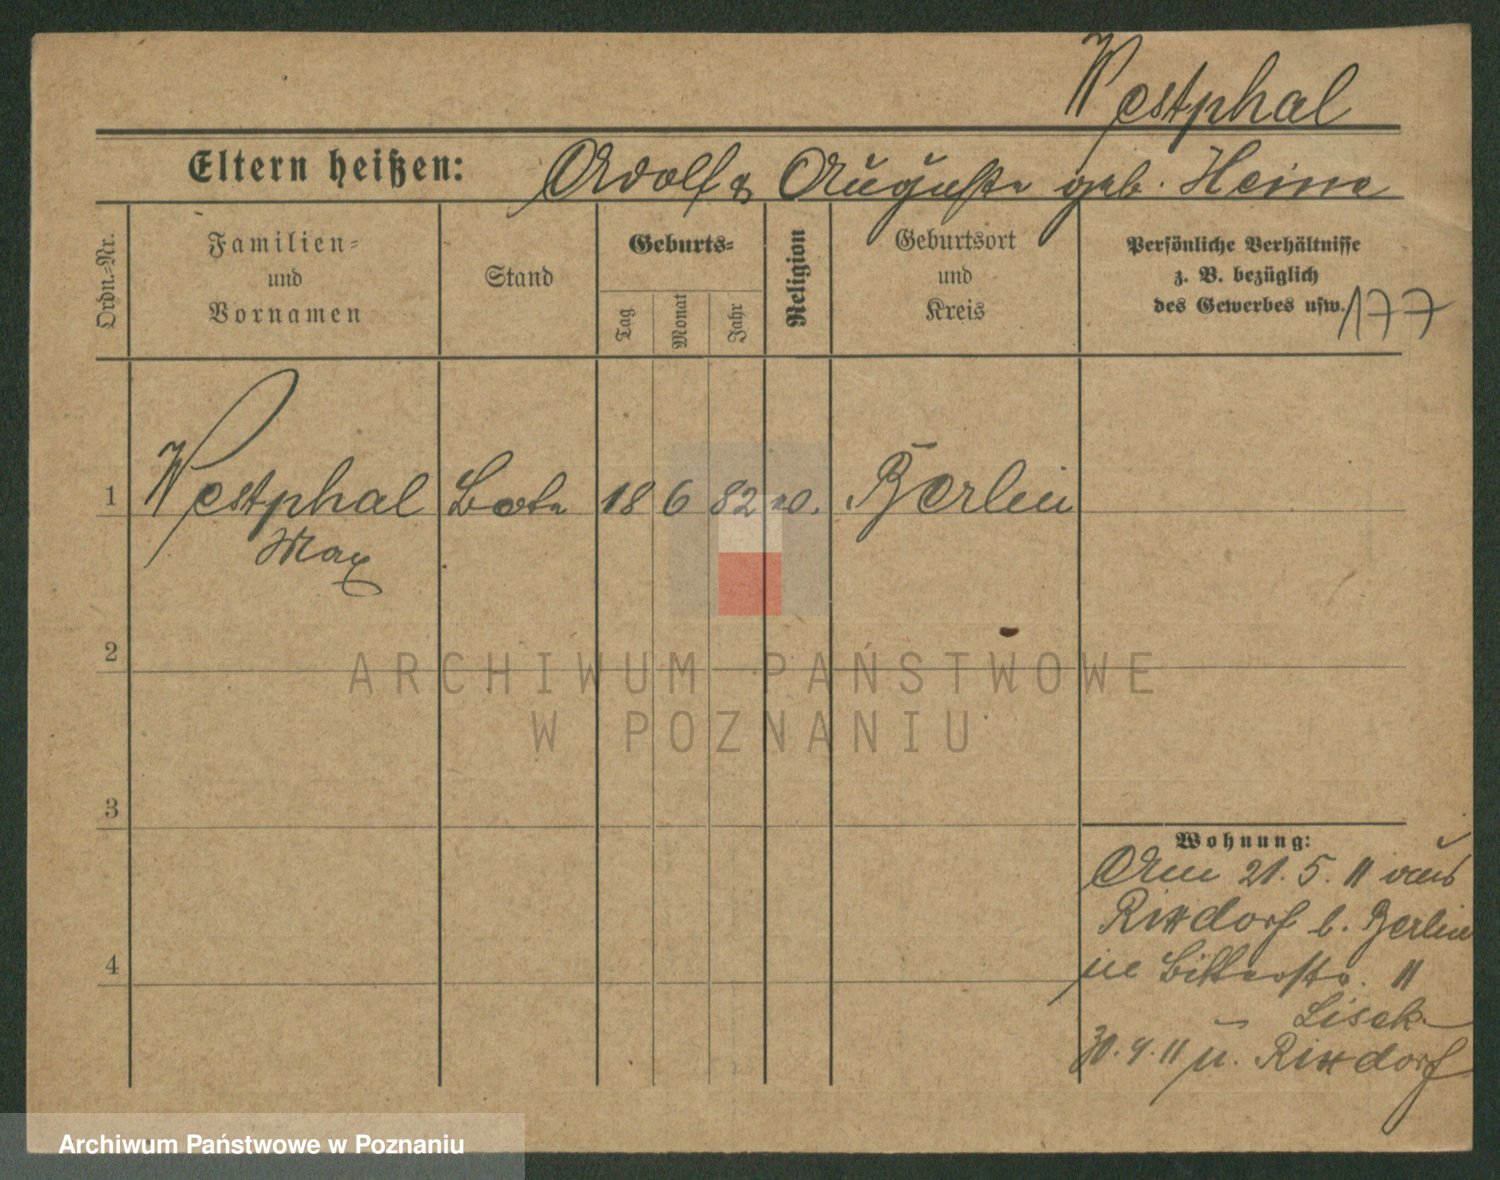 Westphal
Eltern heißen: Adolf & Auguste geb. Heine
Ordn.=Nr.
Familien=
und
Vornamen
Stand
Geburts=
Tag
Monat
Jahr
Religion
Geburtsort
und
Kreis
Persönliche Verhältnisse
z. B. bezüglich
des Gewerbes usw.
177
1 Westphal Bote 18 6 82 Berlin
Max
2
3
4
Wohnung:
Am 21. 5. 11 aus
Rixdorf b. Berlin
in Bitterstr. 11
Lisek
30. 9. 11 n. Rixdorf
ARCHIWUM PAŃSTWOWE
W POZNANIU
Archiwum Państwowe w Poznaniu